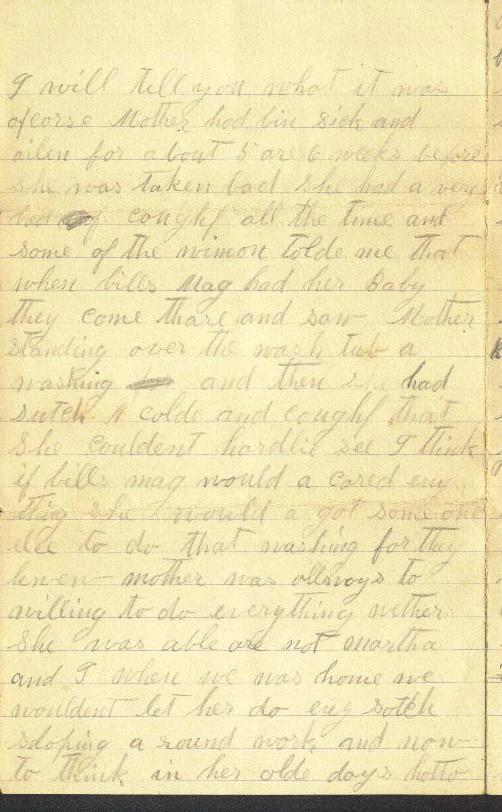 I will tell you what it was
ofcorse Mother had bin sick and
ailen for about 5 are 6 weeks before
she was taken bad she had a very
bad coughf all the time and
some of the wimon tolde me that
when bills Mag had her Baby
they come thare and saw Mother
standing over the wash tub a
washing and then she had
sutch a colde and coughf that
she couldent hardlie see I think
if bills mag would a cared eny
thing she would a got some one
else to do that washing for they
knwen mother was allways to
willing to do everything wether
she was able are not martha
and I when we was home we
wouldent let her do eny sotch
sloping a round work and now
to think in her olde days hotto